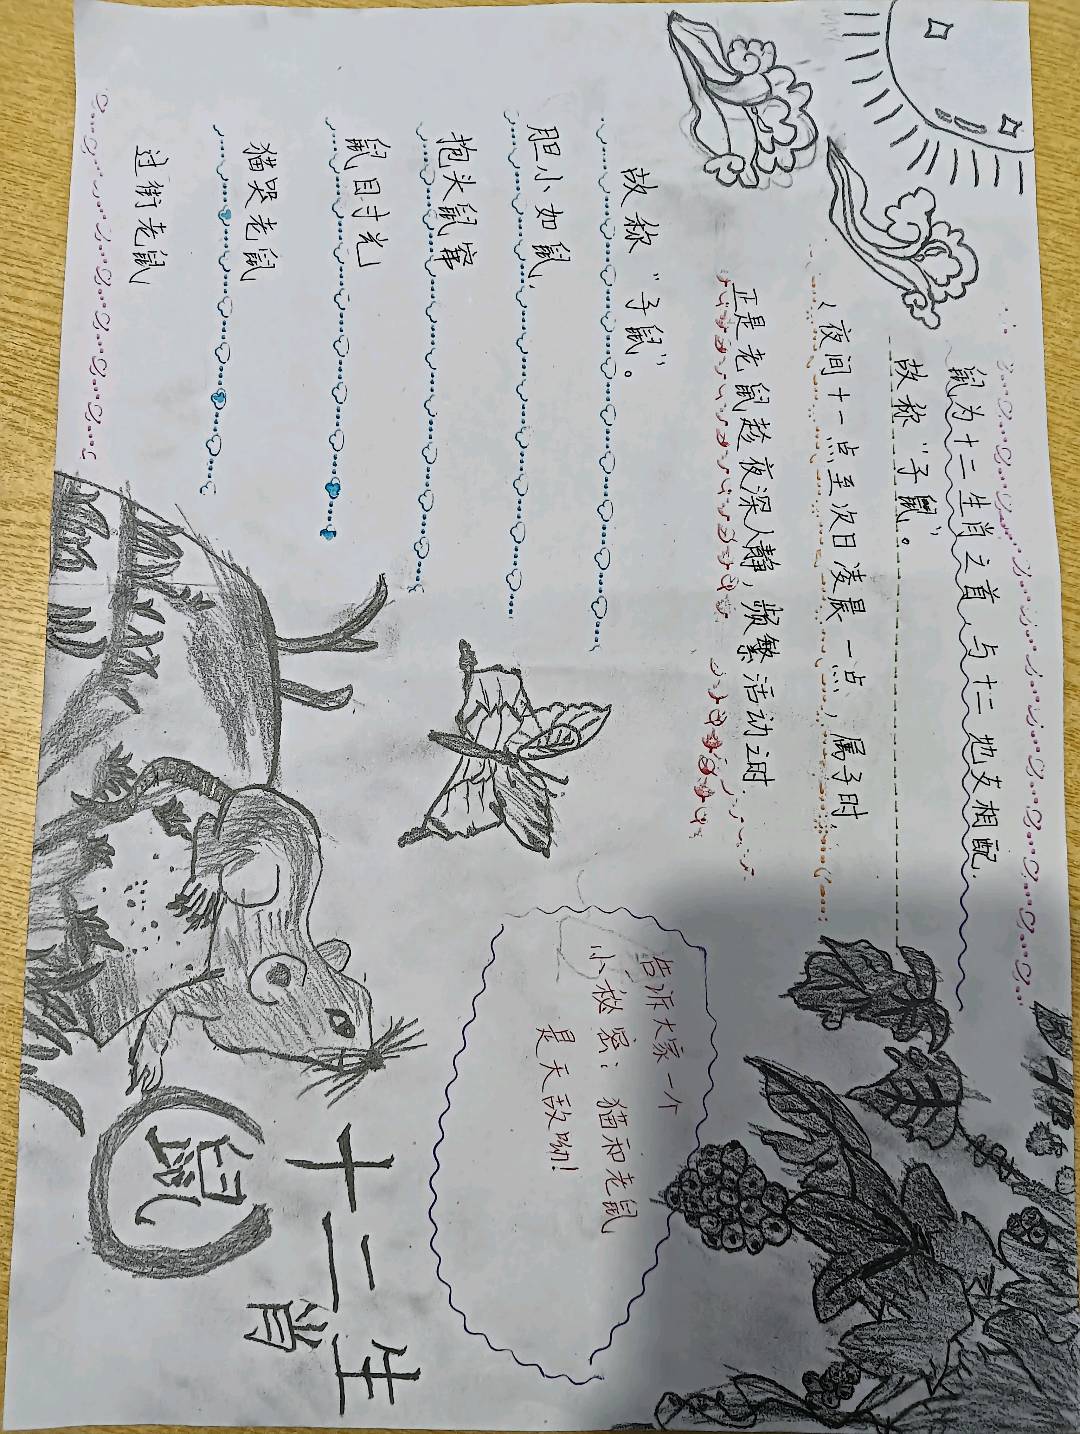 鼠为十二生肖之首,与十二地支相配.
故称“子鼠”。
夜间十一点至次日凌晨一点,属子时
正是老鼠趁夜深人静,频繁活动之时
故称“子鼠”。
胆小如鼠.
抱头鼠窜
鼠目寸光
猫哭老鼠
过街老鼠
告诉大家一个
小秘密:猫和老鼠
是天敌呦!
十二生
肖
鼠